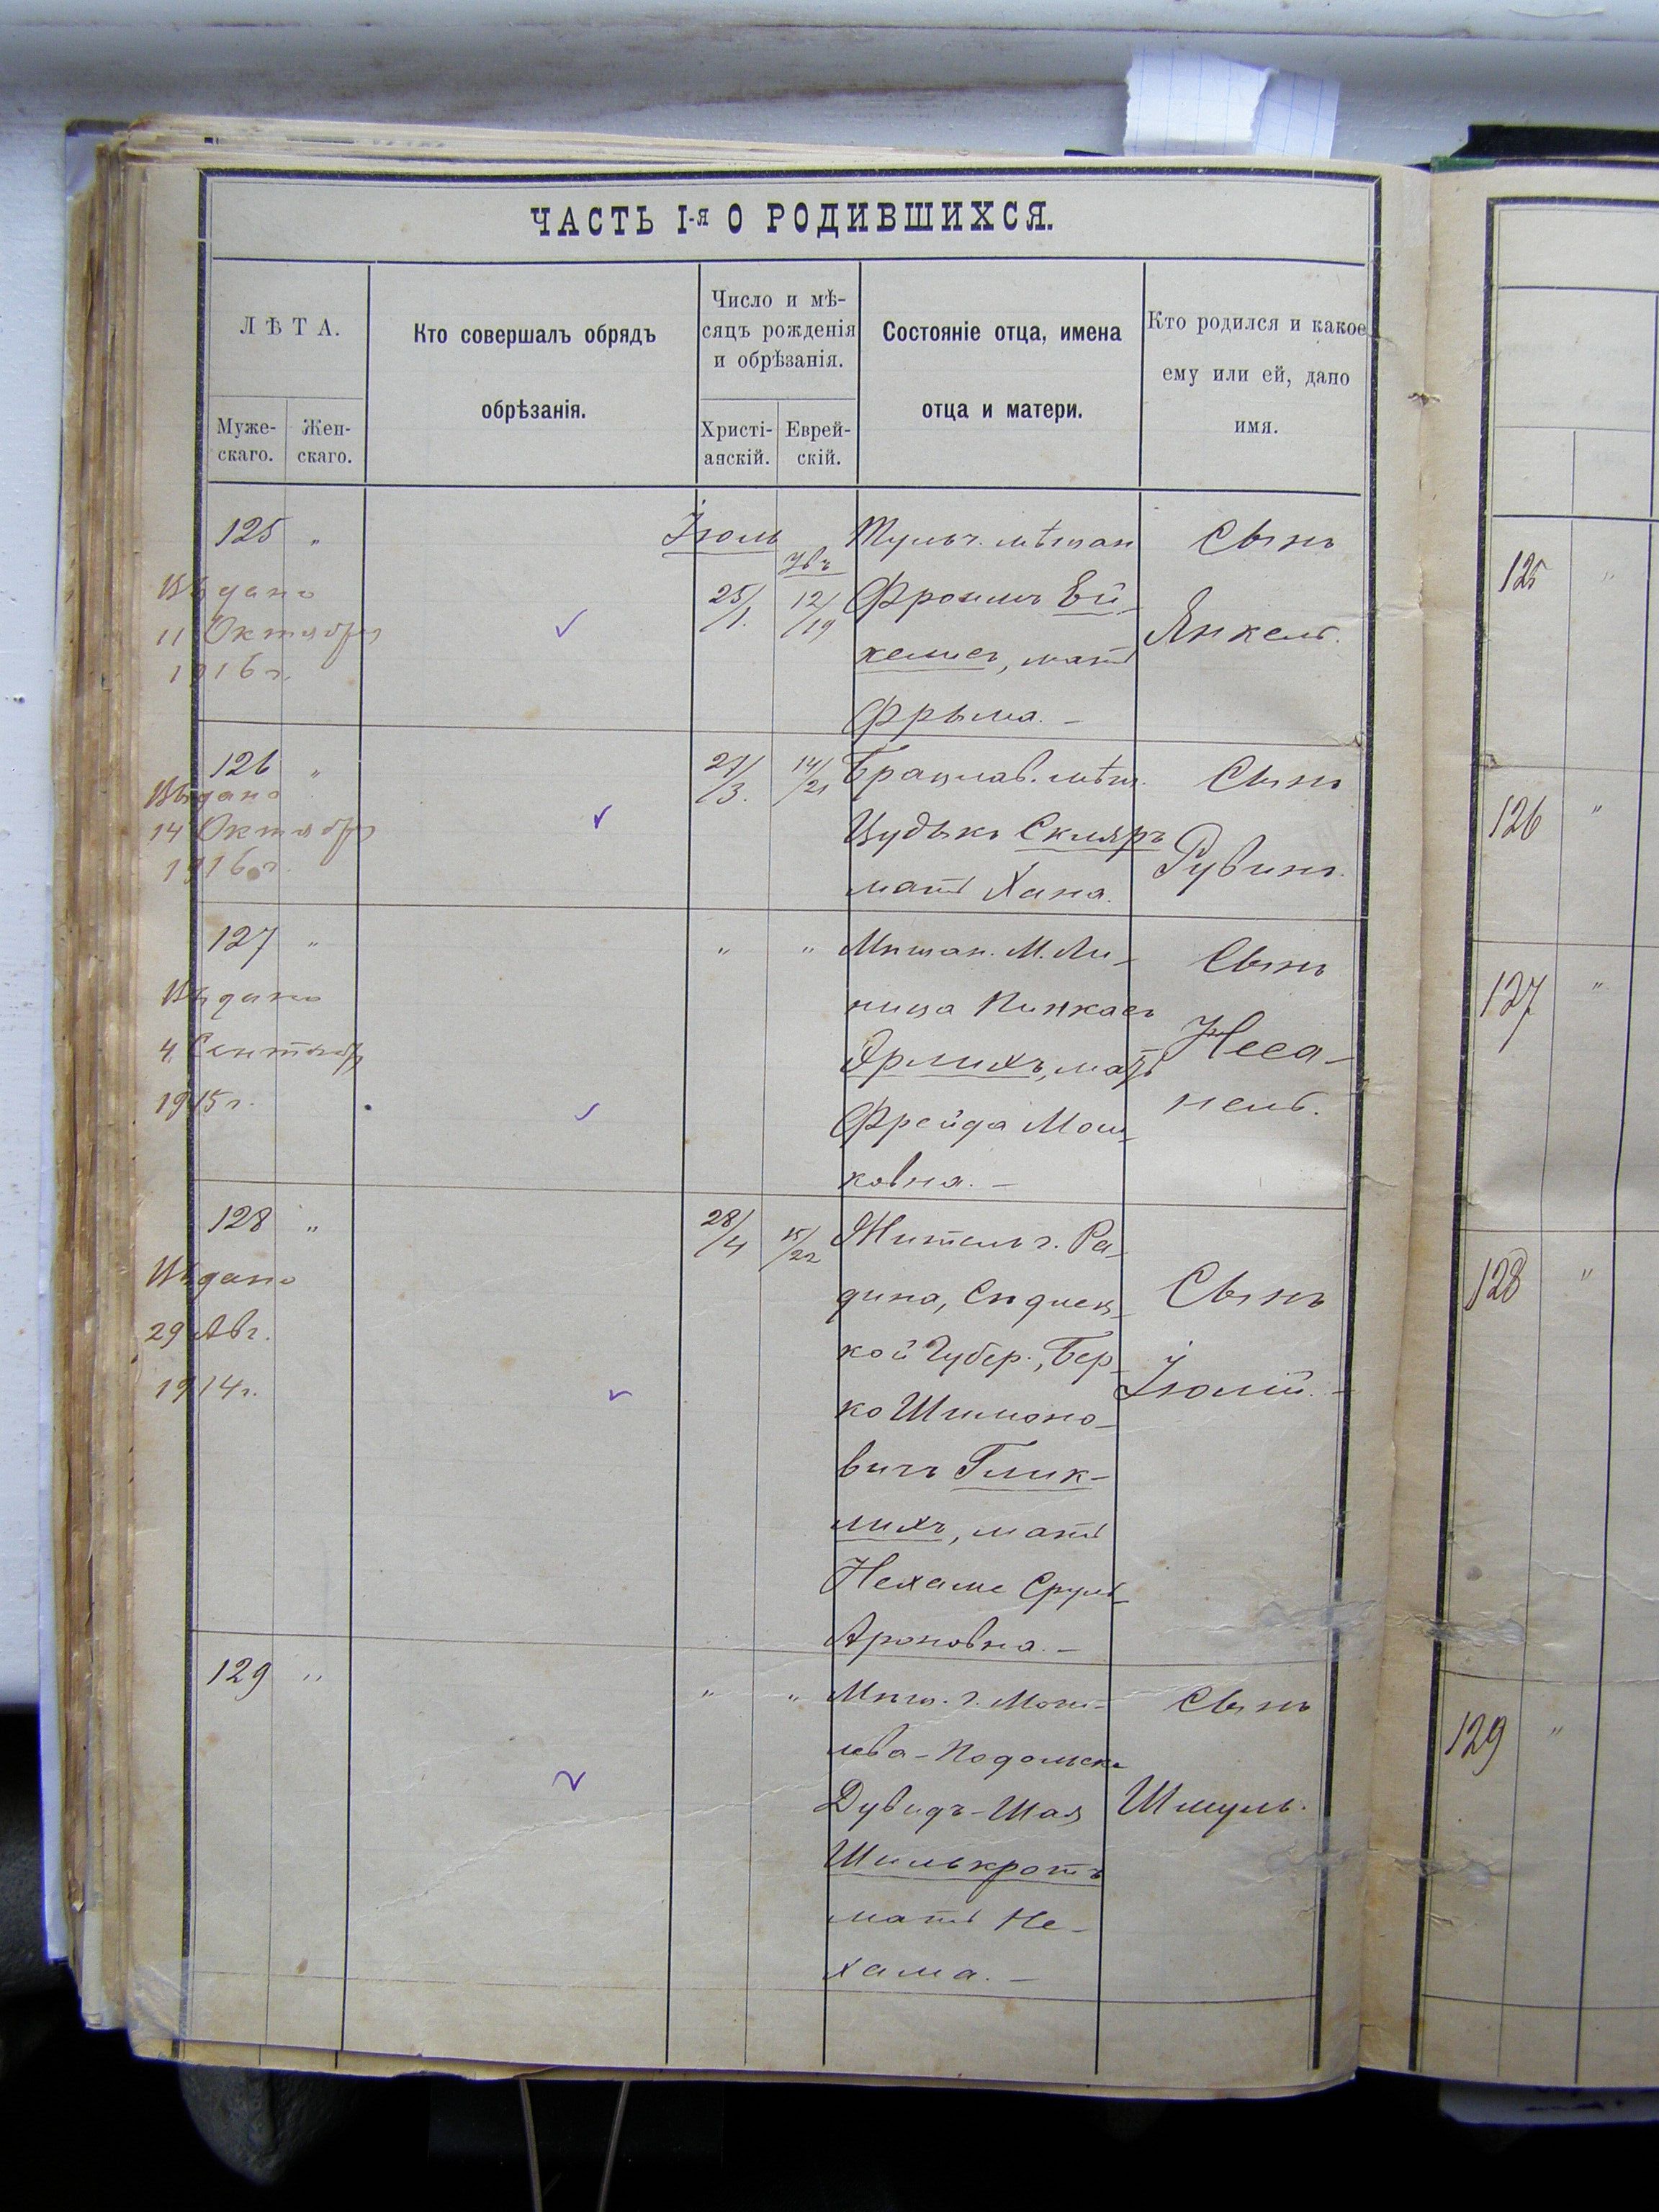 ЧАСТЬ I-я О РОДИВШИХСЯ.
ЛѢТА.
Муже-
скаго.
Жен-
скаго.
Кто совершалъ обрядъ
обрѣзанія.
Число и мѣ-
сяцъ рожденія
и обрѣзанія.
Христі-
анскій.
Еврей-
скій.
Состояніе отца, имена
отца и матери.
Кто родился и какое
ему или ей, дано
имя.
125 "
Выдано
11 Октября
1916 г.
Іюль
25/1.
12/19
Тульч. мѣщан
Фроимъ
мать
Фрыма. –
Сынъ
Янкель.
126 "
Выдано
14 Октября
1916 г.
27/3.
14/21
Брацлав. мѣщ.
Цудыкъ Скляръ
мать Хана.
Сынъ
Рувинъ.
127 "
Выдано
4 Сентября
1915 г.
" "
Мѣщан. М. Ли-
Пинкасъ
Эрлихъ, мать
Фрейда Мош-
ковна. –
Сынъ
Неса-
нель.
128 "
Выдано
29 Авг.
1914 г.
28/4
15/22
Житель г. Ра-
дина, Сѣдлец-
кой Губер., Бер-
ко Шимоно-
вичъ Глик-
лихъ, мать
Нехаме Сруль-
Ароновна. –
Сынъ
129 "
" "
Мѣщ. г. Моги-
лева-Подольска
Дувидъ-Шая
Шилькротъ
мать Не-
хама. –
Сынъ
Шмуль.
125 "
126 "
127 "
128 "
129 "